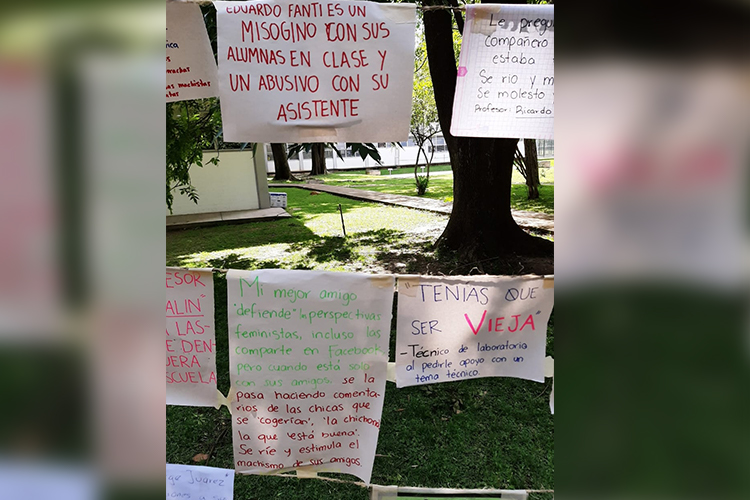 EDUARDO FANTI ES UN
MISOGINO CON SUS
ALUMNAS EN CLASE Y
UN ABUSIVO CON SU
ASISTENTE
Le
compañero
estaba
Se rio y m
Se molesto
Profesor: Ricardo
ESOR
ALIN"
LAS-
DEN-
UERA
SCUELA
Mi mejor amigo
"defiende" la perspectivas
feministas, incluso las
comparte en facebook
pero cuando está solo
con sus amigos, se la
pasa haciendo comenta-
rios de las chicas que
se "cogerían", "la chichona
la que "está buena".
Se ríe y estimula el
machismo de sus amigos.
"TENIAS QUE
SER VIEJA"
-Técnico de laboratorio
al pedirle apoyo con un
tema técnico.
Juarez"